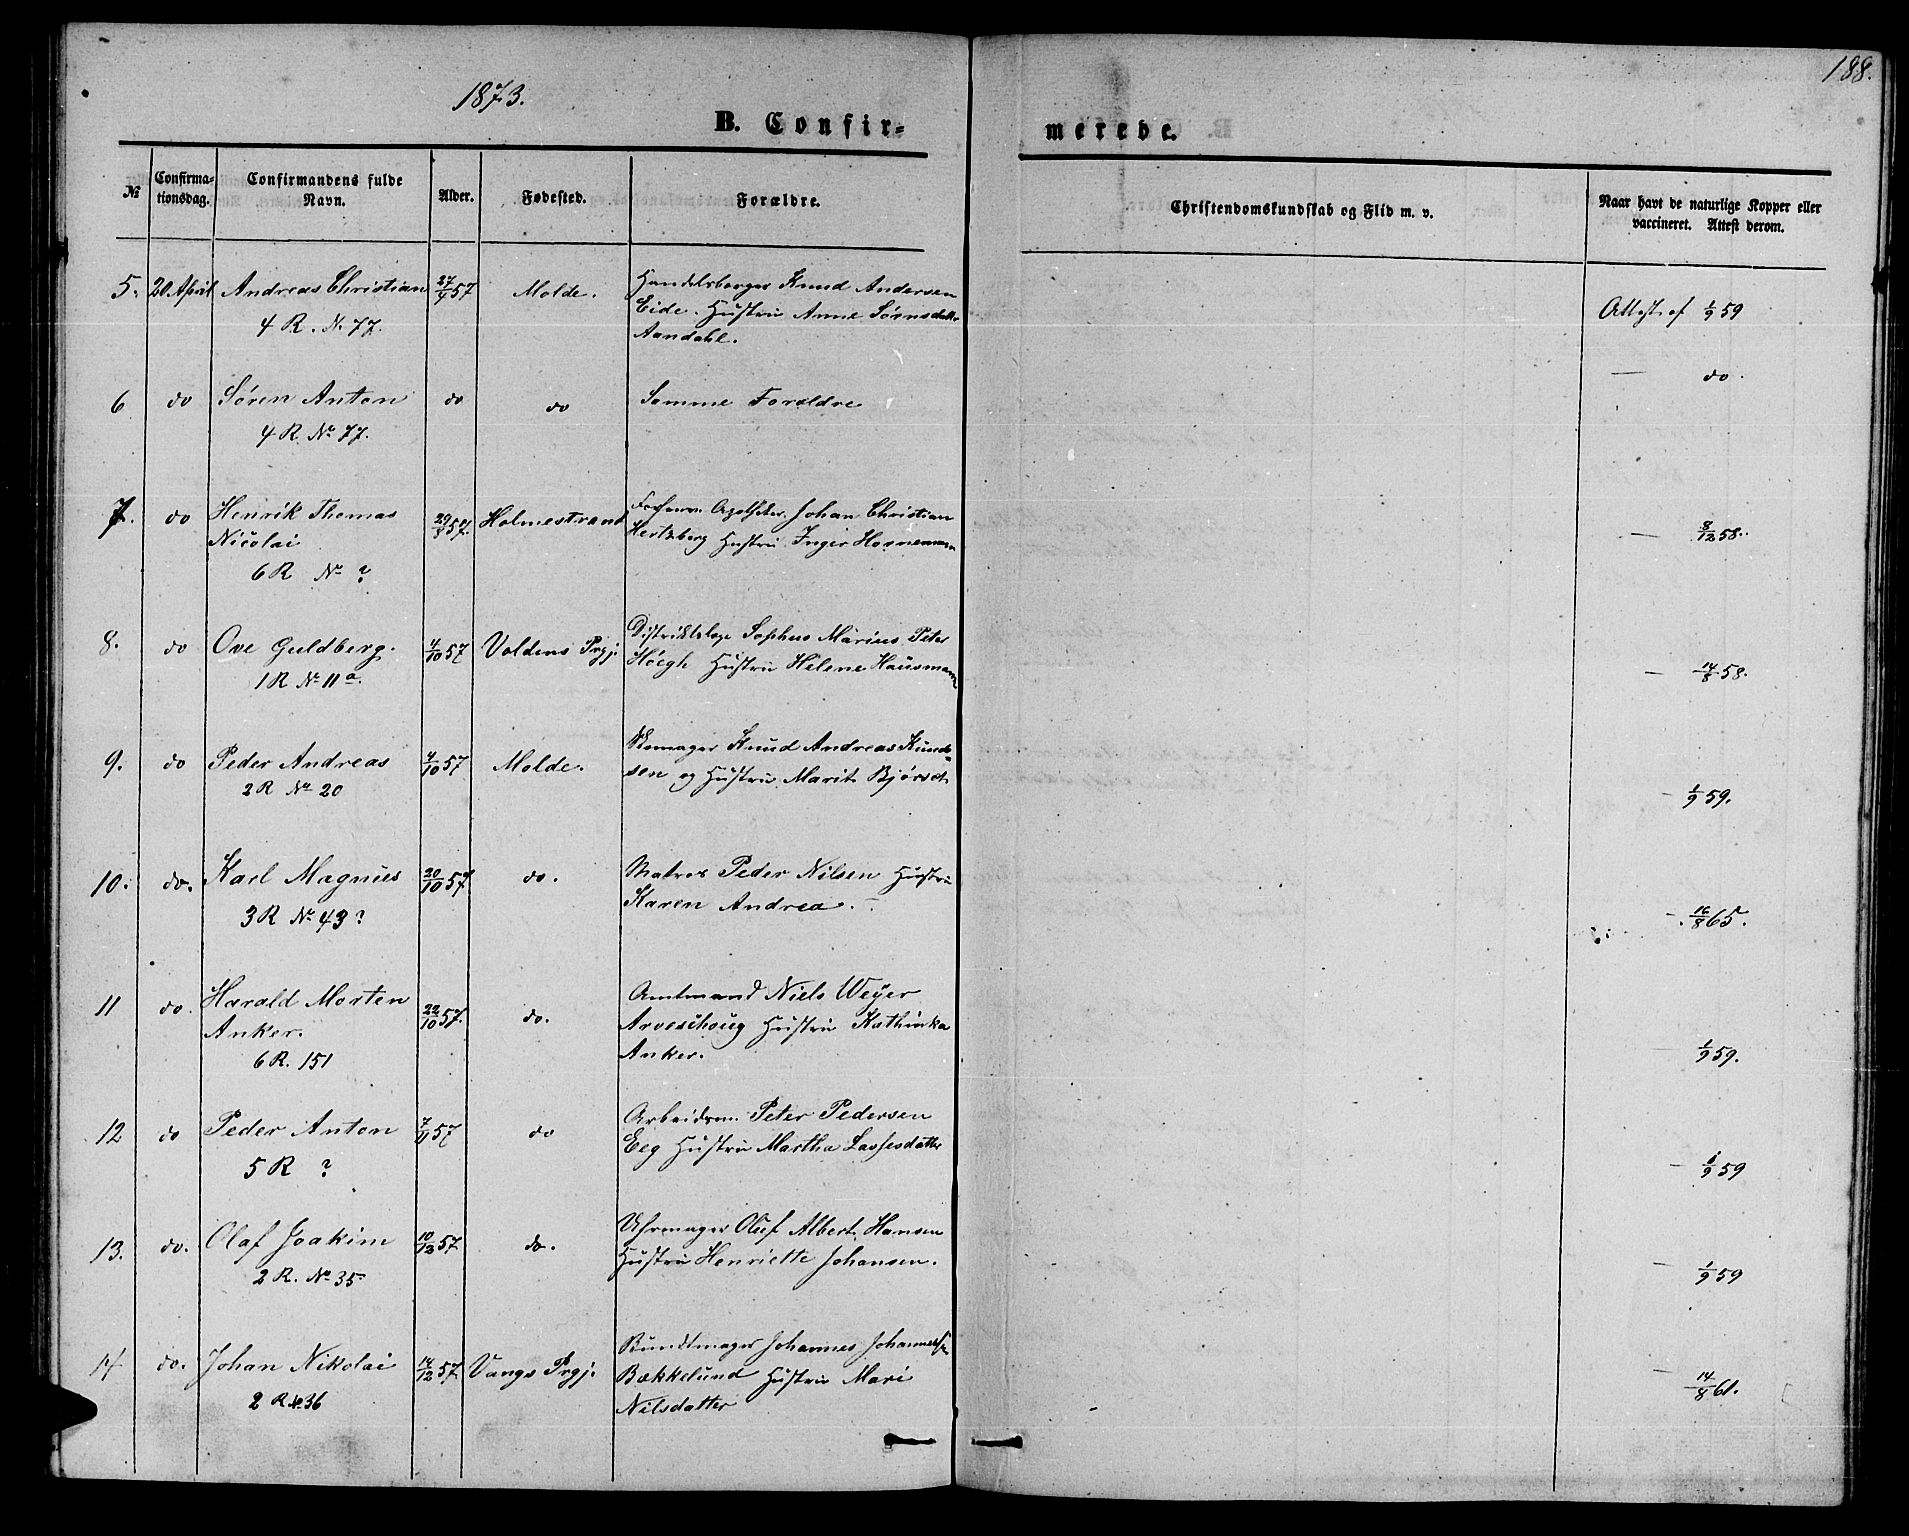 188.
1873.
B. Confir-
merede.
№
Confirma-
tionsdag.
Confirmandens fulde
Navn.
Alder.
Fødested.
Forældre.
Christendomskundskab og Flid m. v.
Naar havt de naturlige Kopper eller
vaccineret. Attest derom.
5. 20 April Andreas Christian 27/4 57 Molde. Handelsborger Knud Andersen
Eide. Hustru Anne Sørnsdatter
Aandahl.
4 R. No 77.
Attest af 1/9 59
6 do Søren Anton do do Samme Forældre
4 R No 77.
— do.
7. do Henrik Thomas 57. Holmestrand Johan Christian
Nicolai Hertzberg Hustru Inger Hornemann
6 R No ?
— 8/12 58.
8. do Ove Guldberg. 4/10 57 Voldens Prgj. Distriktslæge Sophus Marius Peter
Høegh Hustru Helene Hausmann
1 R No 11 a.
— 14/8 58.
9. do Peder Andreas 4/10 57 Molde. Skomager Knud Andreas Knud-
sen og Hustru Marit Bjørset
2 R No 20
— 1/9 59.
10. do. Karl Magnus 20/10 57 do. Matros Peder Nilsen Hustru
Karen Andrea.
3 R No 43?
— 16/8 65.
11 do. Harald Morten 22/10 57. do. Amtmand Niels Weyer
Anker. Arveschoug Hustru Kathinka
Anker.
6 R. 151
— 1/9 59.
12 do Peder Anton 7/11 57 do Arbeidsm. Peter Pedersen
Eeg Hustru Martha Lassesdatter
5 R ?
— 1/9 59
13. do. Olaf Joakim 10/12 57 do. Uhrmager Oluf Albert Hansen
Hustru Henriette Johansen.
2 R. No 35
— 1/9 59
14 do. Johan Nikolai 14/12 57 Vangs Prgj. Bundtmager Johannes Johannessen
Bækkelund Hustru Mari
Nilsdatter
2 R No 36
— 14/8 61.